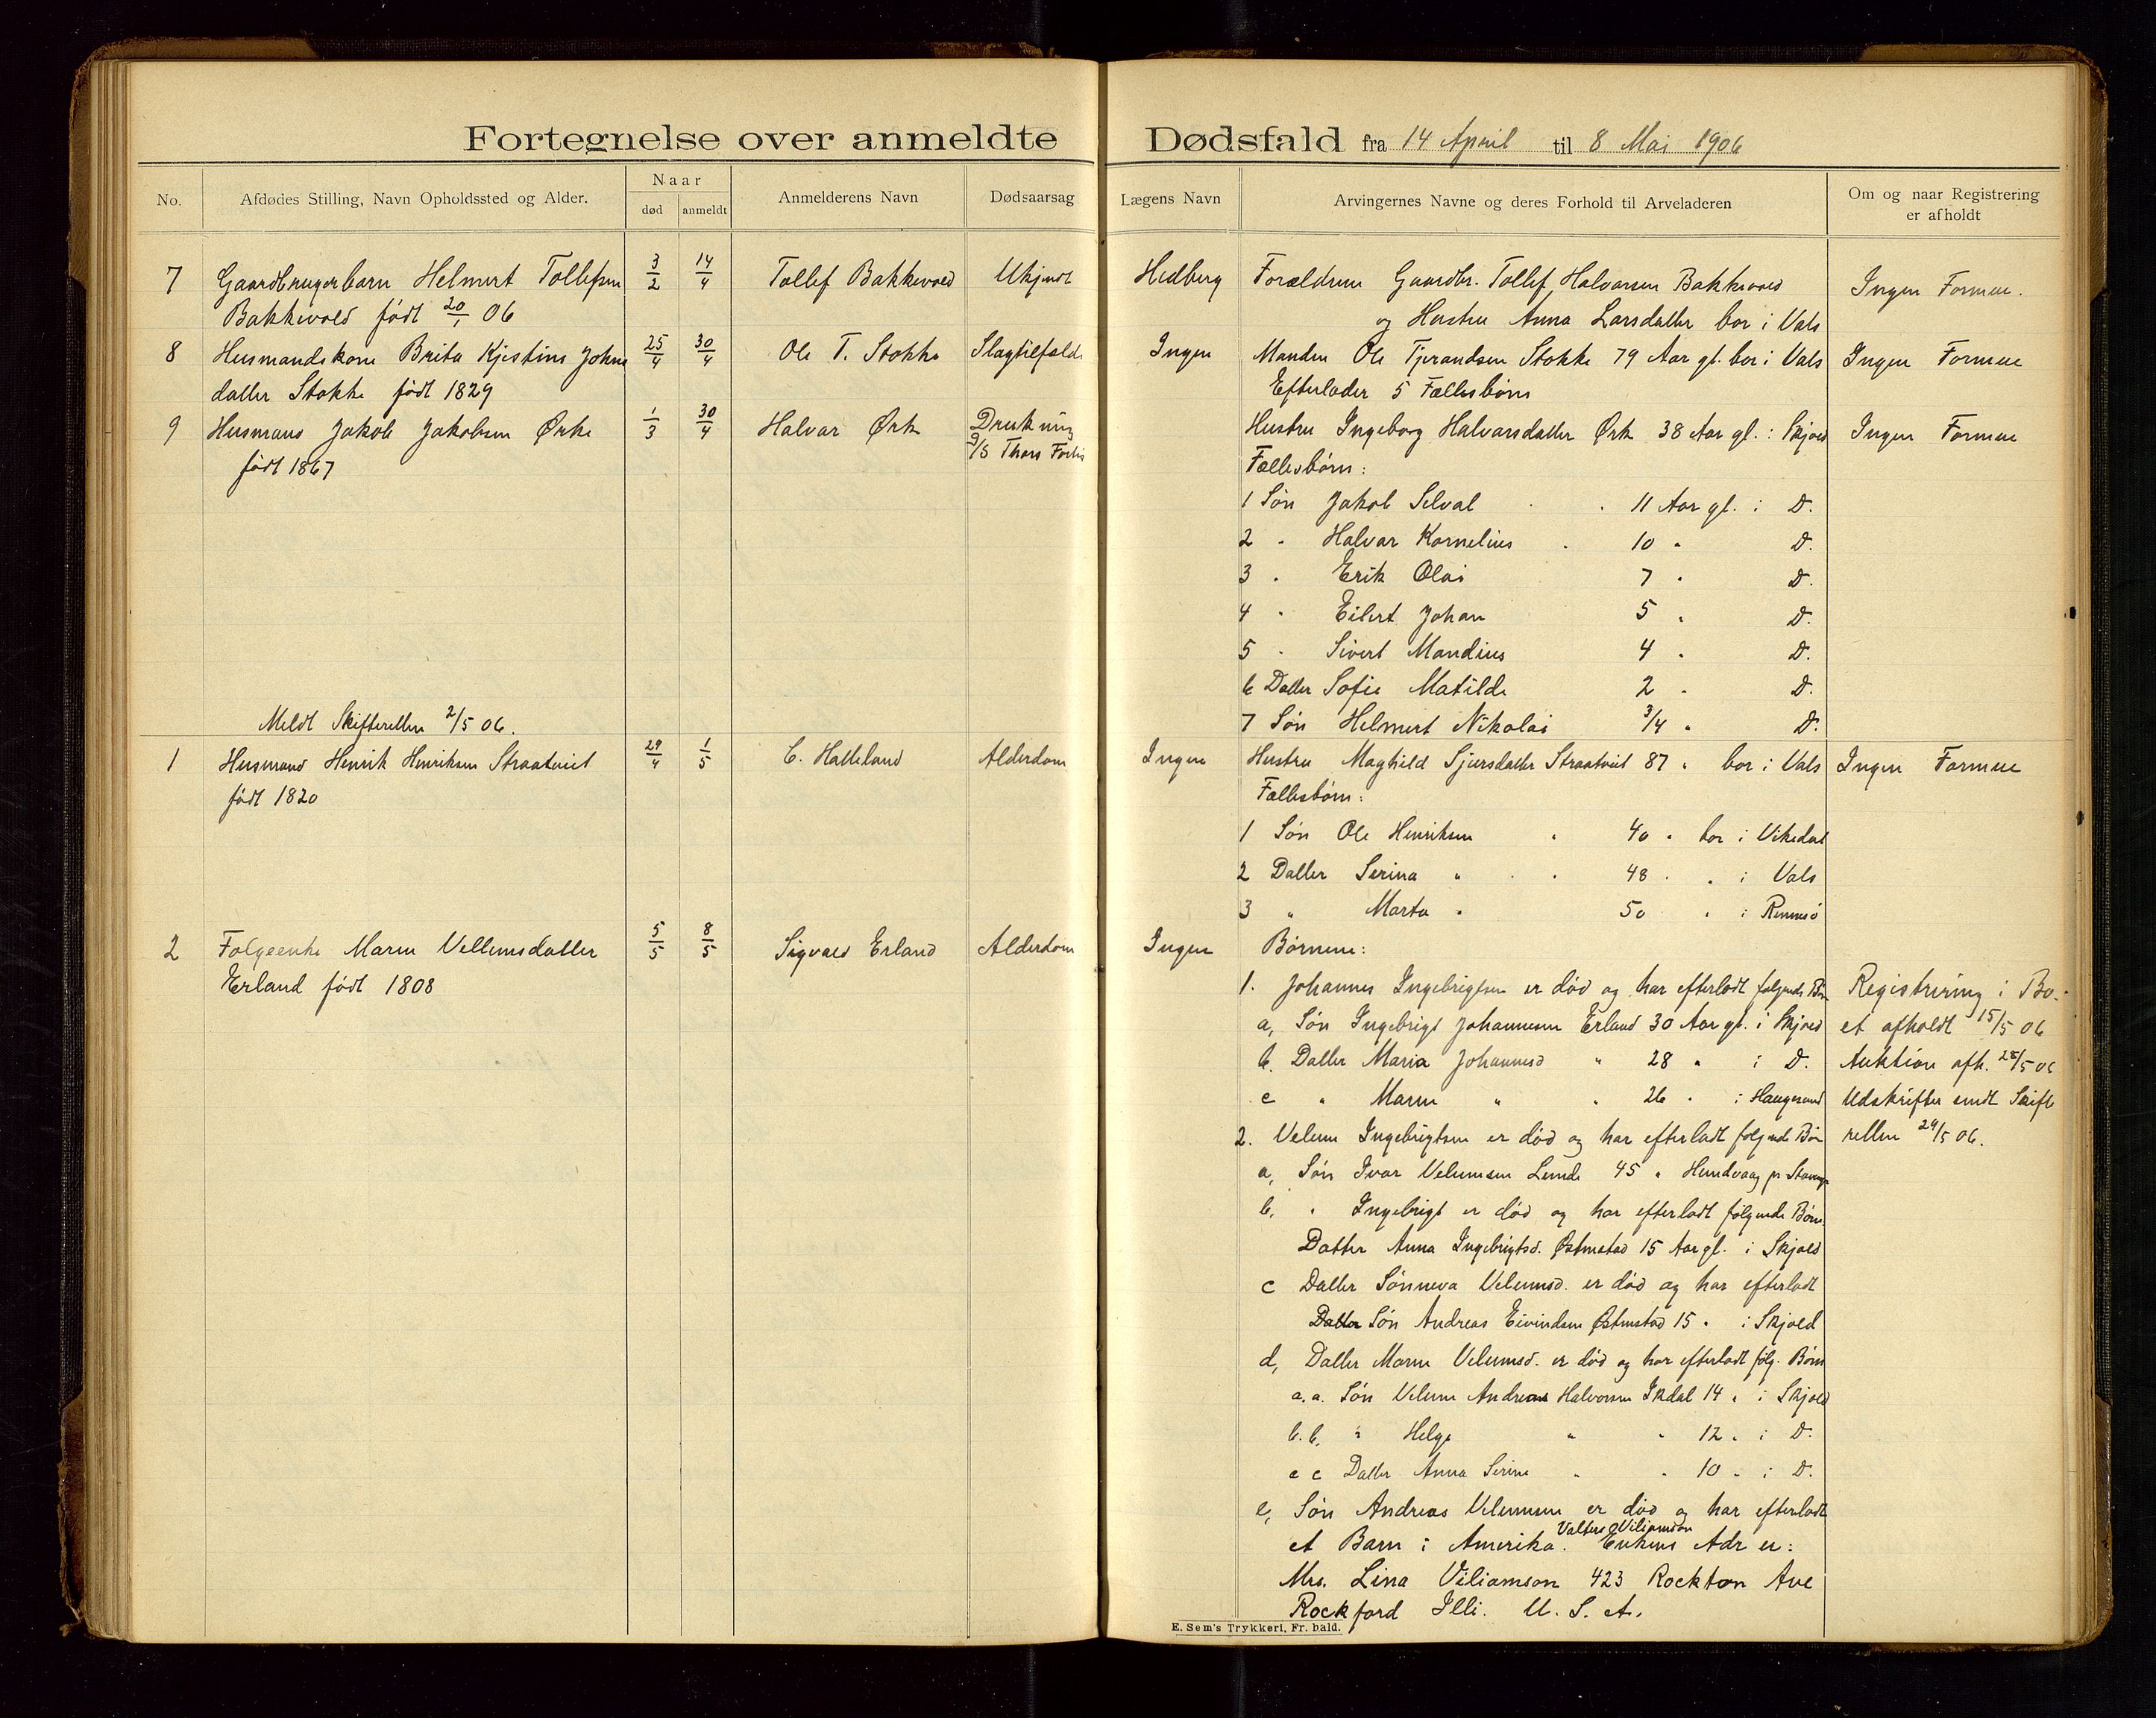 Fortegnelse over anmeldte Dødsfald fra 14 April til 8 Mai 1906
No. Afdødes Stilling, Navn Opholdssted og Alder. Naar død anmeldt Anmelderens Navn Dødsaarsag Lægens Navn Arvingernes Navne og deres Forhold til Arveladeren Om og naar Registrering er afholdt
7 Gaardbrugerbarn Helmert Tollefsen 3/2 14/4 Tollef Bakkevold Ukjendt Hedberg Forældrene Gaardbr. Tollef Halvorsen Bakkevold Ingen Formue.
Bakkevold født 20/1 06 og Hustru Anna Larsdatter bor i Vats
8 Husmandskone Brita Kjestine Johns 25/4 30/4 Ole T. Stokke Slagtilfælde Ingen Manden Ole Tjerandsen Stokke 79 Aar gl. bor i Vats Ingen Formue
datter Stokke født 1829 Efterlader 5 Fællesbørn
9 Husmand Jakob Jakobsen Ørke 1/3 30/4 Halvar Ørk Drukning Hustru Ingeborg Halvarsdatter Ørk 38 Aar gl. i Skjold Ingen Formue
født 1867 D/S Thors Forlis Fællesbørn:
1 Søn Jakob Selval 11 Aar gl. i D.
2 " Halvar Kornelius 10 " D.
3 " Erik Olai 7 " D.
4 " Eilert Johan 5 " D.
5 " Sivert Mandius 4 " D.
6 Datter Sofie Matilde 2 " D.
Meldt Skifteretten 2/5 06. 7 Søn Helmert Nikolai 3/4 " D.
1 Husmand Henrik Henriksen Straatveit 29/4 1/5 C. Halleland Alderdom Ingen Hustru Maghild Sjursdatter Straatveit 87 " bor i Vats Ingen Formue
født 1820 Fællesbørn:
1 Søn Ole Henriksen " 40 " bor i Vikedal
2 Datter Serina " " 48 " " i Vats
3 " Marta " 50 " i Rennesø
2 Følgeenke Maren Vellemsdatter 5/5 8/5 Sigvald Erland Alderdom Ingen Børnene:
Erland født 1808 1. Johannes Ingebrigtsen er død og har efterladt følgende Børn Registrering i Bo-
a, Søn Ingebrigt Johannesen Erland 30 Aar gl. i Skjold et afholdt 15/5 06
b. Datter Maria Johannesd " 28 " i D. Auktion afh. 28/5 06
c " Maren " " 26 " i Haugesund Udskrifter sendt Skift
2. Velem Ingebrigtsen er død og har efterladt følgende Børn retten 29/5 06.
a, Søn Ivar Velemsen Lunde 45 " Hundvaag pr Stavngr
b, " Ingebrigt er død og har efterladt følgende Børn
Datter Anna Ingebrigtsd. Østmstad 15 Aar gl. i Skjold
c Datter Sønneva Velemsd. er død og har efterladt
Datter Søn Andreas Eivindsen Østmstad 15 " i Skjold
d, Datter Maren Velemsd. er død og har efterladt følg. Børn
a.a. Søn Velem Andreas Halvorsen Ikdal 14 " i Skjold
b.b. " Helge " " 12 " i D.
c c Datter Anna Serine " " 10 " i D.
e, Søn Andreas Velemsen er død og har efterladt
Valters Viliamson
et Barn i Amerika. Enkens Adr er:
Mrs. Lina Viliamson 423 Rockton Ave
Rockford Illi. U. S. A.
E. Sem's Trykkeri, Fr. hald.